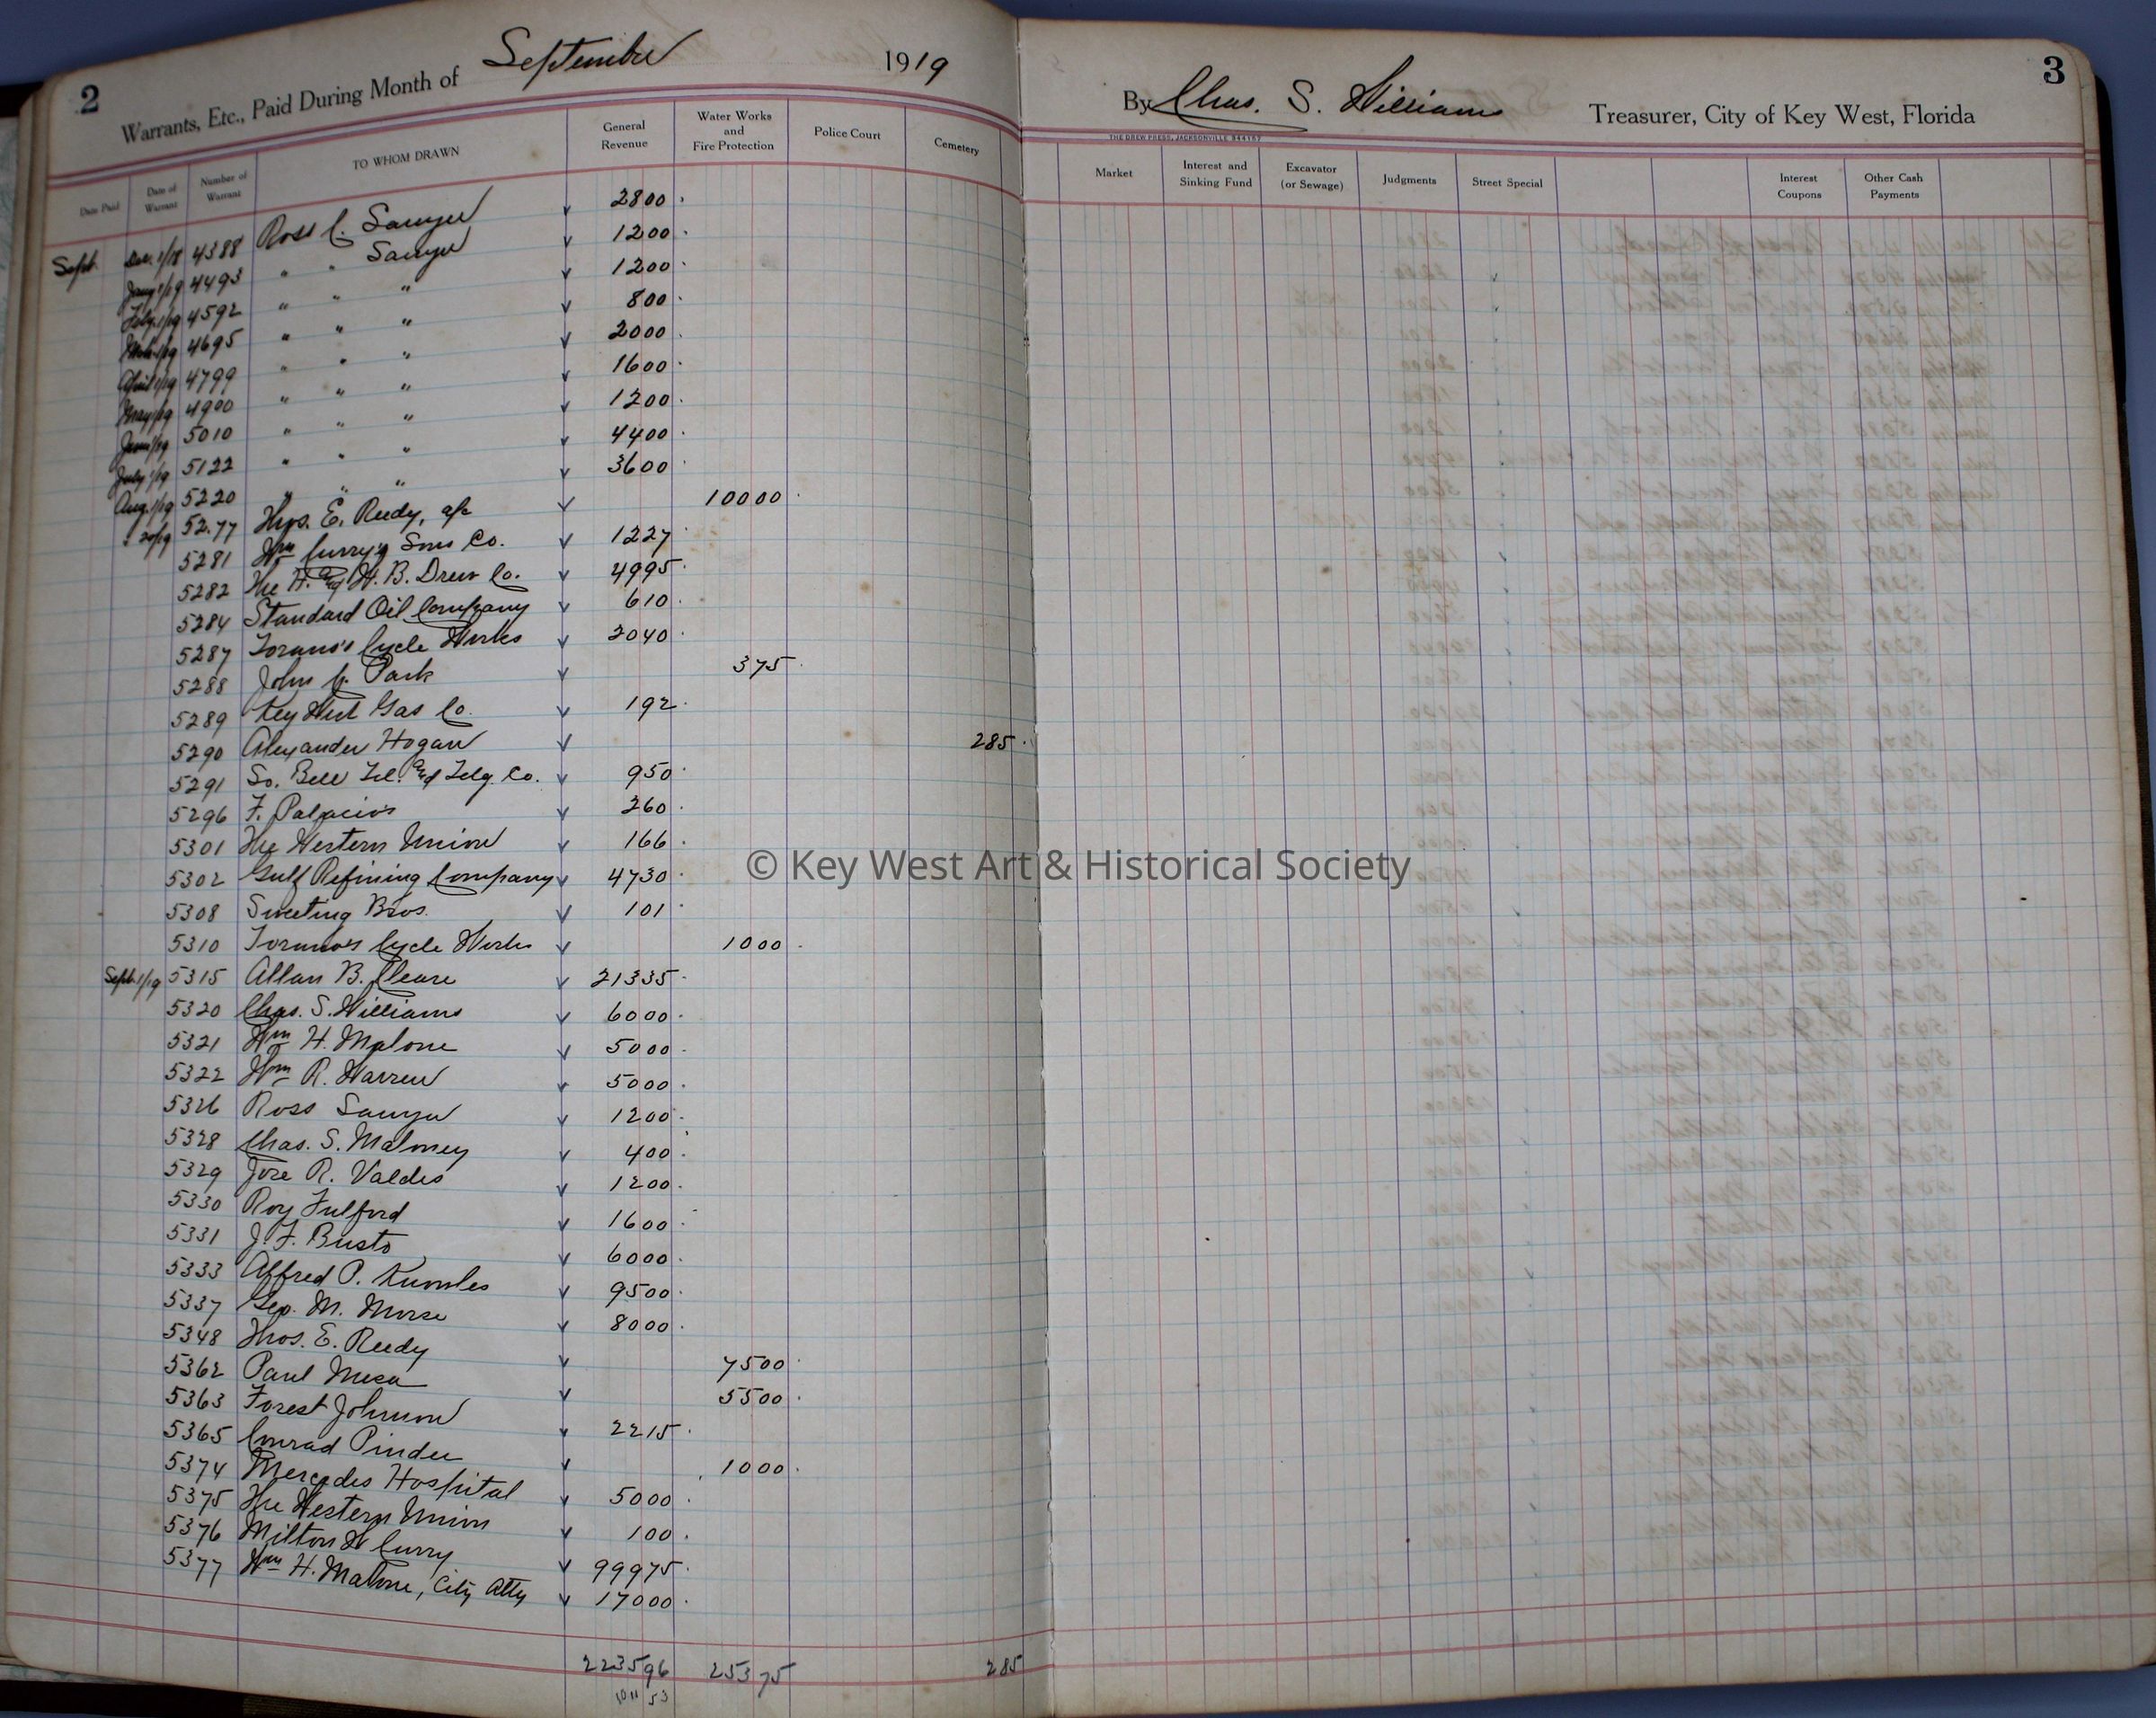 2 Warrants, Etc., Paid During Month of September 1919
By Chas. S. Williams Treasurer, City of Key West, Florida 3
THE DREW PRESS, JACKSONVILLE
Date Paid Date of Warrant Number of Warrant TO WHOM DRAWN General Revenue Water Works and Fire Protection Police Court Cemetery Market Interest and Sinking Fund Excavator (or Sewage) Judgments Street Special Interest Coupons Other Cash Payments
Sept. Dec. 1/18 4388 Ross C. Sawyer 2800
Jany 1/19 4493 " " Sawyer 1200
Feby. 1/19 4592 " " " 1200
Mch. 1/19 4695 " " " 800
April 1/19 4799 " " " 2000
May 1/19 4900 " " " 1600
June 1/19 5010 " " " 1200
July 1/19 5122 " " " 4400
Aug. 1/19 5220 " " " 3600
" 20/19 5277 Thos. E. Reedy, a/c 10000
5281 Wm Curry's Sons Co. 1227
5282 The H. and W. B. Drew Co. 4995
5284 Standard Oil Company 610
5287 Torano's Cycle Works 2040
5288 John C. Park 375
5289 Key West Gas Co. 192
5290 Alexander Hogan 285
5291 So. Bell Tel. and Telg. Co. 950
5296 F. Palacios 260
5301 The Western Union 166
5302 Gulf Refining Company 4730
5308 Sweeting Bros. 101
5310 Torano's Cycle Works 1000
Sept. 1/19 5315 Allan B. Cleare 21335
5320 Chas. S. Williams 6000
5321 Wm H. Malone 5000
5322 Wm R. Warren 5000
5326 Ross Sawyer 1200
5328 Chas. S. Maloney 400
5329 Jose R. Valdes 1200
5330 Roy Fulford 1600
5331 J. F. Busto 6000
5333 Alfred P. Knowles 9500
5337 Geo. M. Morse 8000
5348 Thos. E. Reedy 7500
5362 Paul Mesa 5500
5363 Forest Johnson 2215
5365 Conrad Pinder 1000
5374 Mercedes Hospital 5000
5375 The Western Union 100
5376 Milton W Curry 99975
5377 Wm H. Malone, City Atty 17000
223596 25375 285
1011 53
© Key West Art & Historical Society